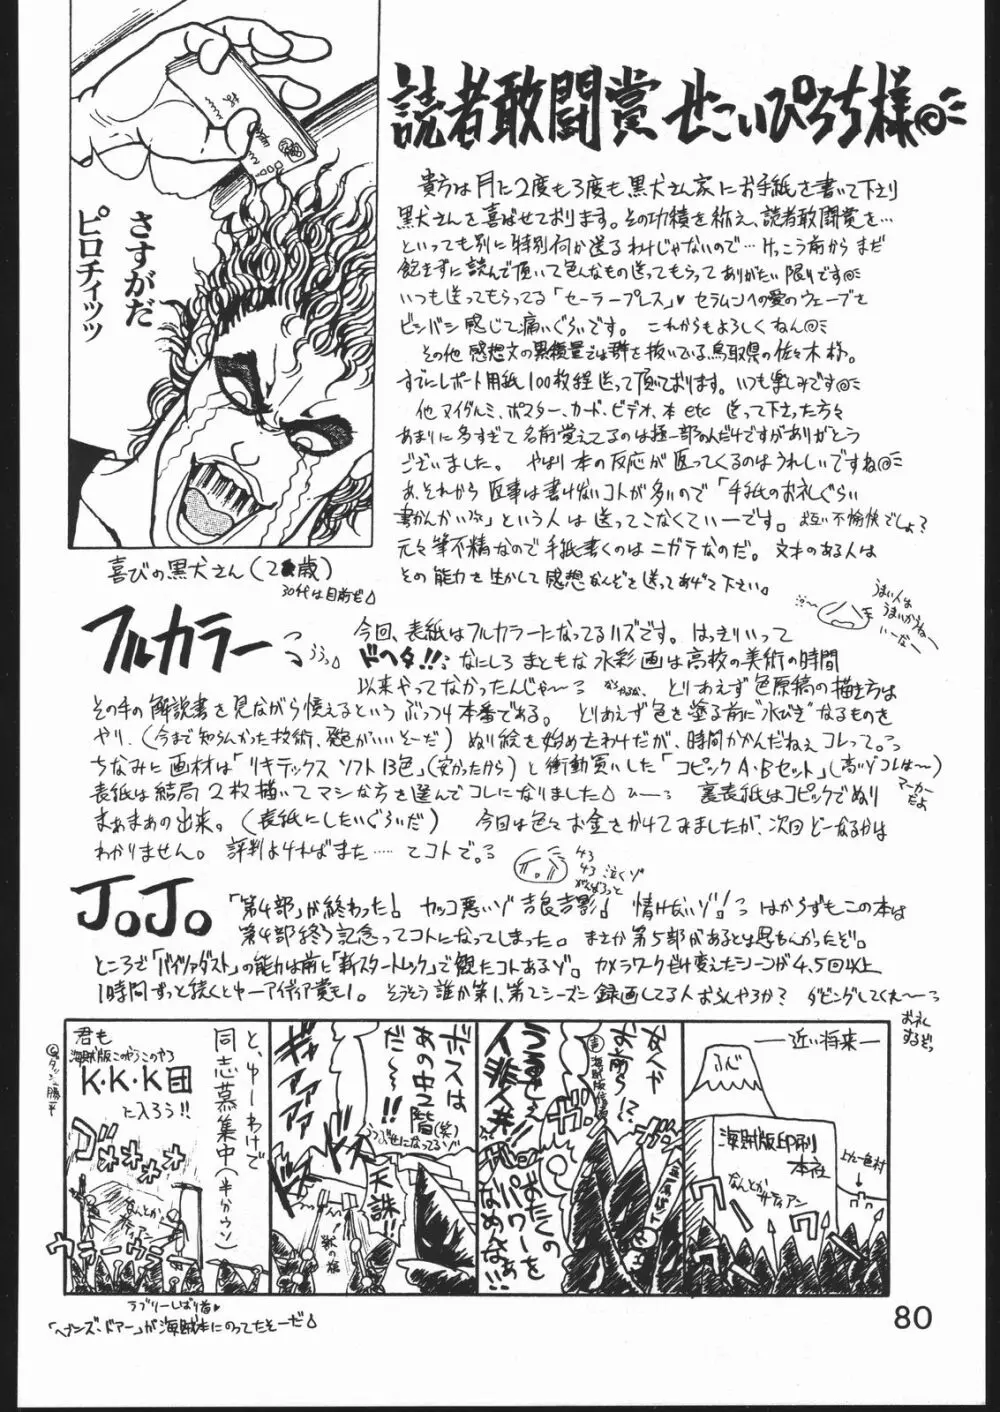 読者敢闘賞 せこいぴろち様
さすがだ
ピロチィッッ
喜びの黒犬さん(2 歳)
30代は目前だ
貴方は月に2度も3度も黒犬さん家にお手紙を書いて下さり
黒犬さんを喜ばせております。その功積を称え、読者敢闘賞を…
といっても別に特別何か送るわけじゃないので…けっこう前からまだ
飽きずに読んで頂いて色んなもの送ってもらってありがたい限りです
いつも送ってもらってる「セーラープレス」♥セラムンへの愛のウェーブを
ビンバン感じて痛いぐらいです。これからもよろしくねん
その他 感想文の累積量では群を抜いている鳥取県の佐々木様。
すでにレポート用紙100枚程送って頂いております。いつも楽しみです
他 ヌイグルミ、ポスター、カード、ビデオ、本 etc 送って下さった方々
あまりに多すぎて名前覚えてるのは極一部なんだけですがありがとう
ございました。やはり本の反応が返ってくるのはうれしいですね
あ、それから返事は書けないコトが多いので「手紙のお礼ぐらい
書かんかい」という人は送ってこなくていーです。お互い不愉快でしょ?
元々筆不精なので手紙書くのはニガテなのだ。文才のある人は
その能力を生かして感想なんぞを送ってあげて下さい。
うまい人は
うまいからねー
いーなー
フルカラー
今回、表紙はフルカラーになってるハズです。はっきりいって
ドヘタ!!なにしろまともな水彩画は高校の美術の時間
以来やってなかったんじゃ〜 とりあえず色原稿の描き方は
その手の解説書を見ながら憶えるというぶっつけ本番である。とりあえず色を塗る前に"水びき"なるものを
やり、(今まで知らんかった技術、発色がいいそーだ)ぬり絵を始めたわけだが、時間かかんだねぇコレって。
ちなみに画材は「リキテックス ソフト13色」(安かったから)と衝動買いした「コピックA・Bセット」(高いゾコレは〜)
マーカーだよ
表紙は結局2枚描いてマシな方を選んでコレになりました ひー 裏表紙はコピックでぬり
まぁまぁの出来。(表紙にしたいぐらいだ) 今回は色々お金をかけてみましたが、次回どーなるかは
わかりません。評判よければまた……てコトで。
JoJo
「第4部」が終わった! カッコ悪いゾ吉良吉影! 情けないゾ! はからずもこの本は
第4部終了記念ってコトになってしまった。まさか第5部があるとは思もんかったぞ。
ところで「バイツァダスト」の能力は前に「新スタートレック」で観たコトあるゾ。カメラワークだけ変えたシーンが4,5回以上
1時間ずっと続くと中一アイディア賞も1。そうそう誰か第1、第2シーズン録画してる人おらんやろか? ダビングしてくれ〜
お礼するぞっ
―近い将来―
ふじ
海賊版印刷
本社
なんとか
サティアン
上九一色村
友人や
お前ら!?
海賊版信者
うるせぇ
人非人共
おたくの
パワーを
なめんなぁ!!
ボスは
あの中2階(笑)
だ〜!!
うつぶせになってるゾ
天誅!!
ギィァァァ
と、ゆーわけで
同志慕集中(半分ウソ)
君も
海賊版このやろこのやろ
K・K・K団
に入ろう!!
ゴォォォォ
なんとか
サティアン
ラブリーしばり首♥
「ヘブンズ・ドアー」が海賊本にのってたそーだ
80